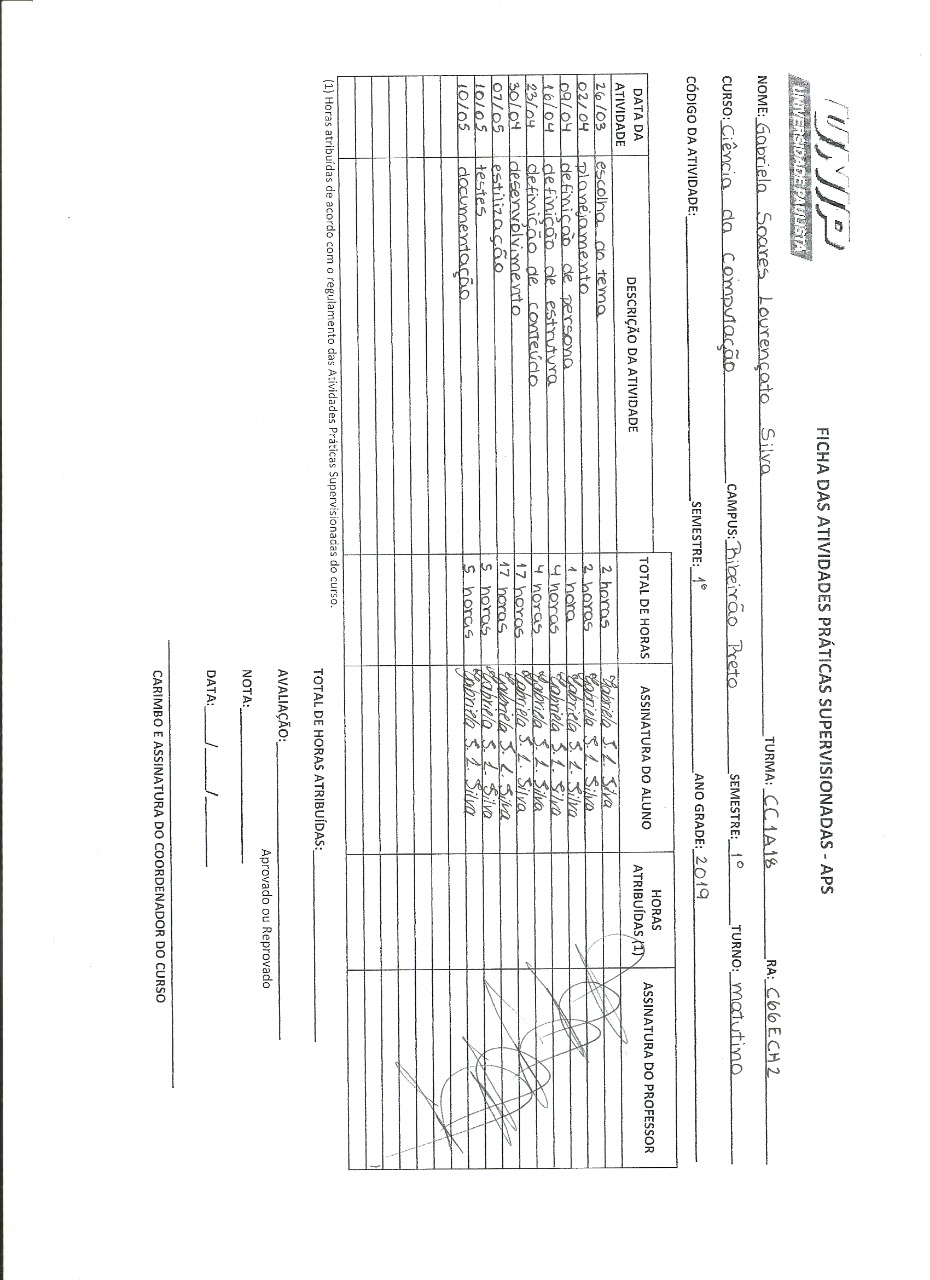 UNIP
UNIVERSIDADE PAULISTA
FICHA DAS ATIVIDADES PRÁTICAS SUPERVISIONADAS - APS
NOME: Gabriela Soares Lourençato Silva TURMA: CC1A18 RA: C66ECH2
CURSO: Ciência da Computação CAMPUS: Ribeirão Preto SEMESTRE: 1º TURNO: matutino
CÓDIGO DA ATIVIDADE: SEMESTRE: 1º ANO GRADE: 2019
DATA DA ATIVIDADE DESCRIÇÃO DA ATIVIDADE TOTAL DE HORAS ASSINATURA DO ALUNO HORAS ATRIBUÍDAS (1) ASSINATURA DO PROFESSOR
26/03 escolha do tema 2 horas Gabriela S. L. Silva
02/04 planejamento 2 horas Gabriela S. L. Silva
09/04 definição de persona 1 hora Gabriela S. L. Silva
16/04 definição de estrutura 4 horas Gabriela S. L. Silva
23/04 definição de conteúdo 4 horas Gabriela S. L. Silva
30/04 desenvolvimento 17 horas Gabriela S. L. Silva
07/05 estilização 17 horas Gabriela S. L. Silva
10/05 testes 5 horas Gabriela S. L. Silva
10/05 documentação 5 horas Gabriela S. L. Silva
(1) Horas atribuídas de acordo com o regulamento das Atividades Práticas Supervisionadas do curso.
TOTAL DE HORAS ATRIBUÍDAS:
AVALIAÇÃO:
Aprovado ou Reprovado
NOTA:
DATA: / /
CARIMBO E ASSINATURA DO COORDENADOR DO CURSO